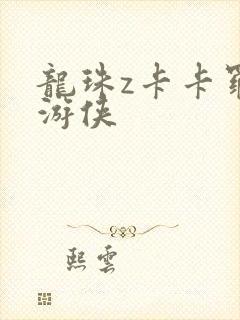 龍珠z卡卡羅
游俠
熙雲